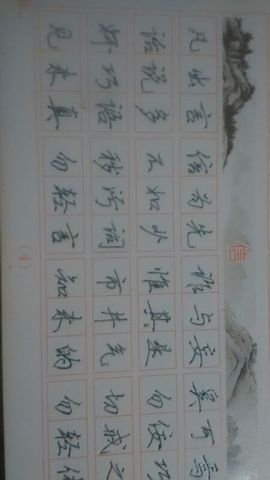 信
凡出言 信为先 诈与妄 奚可焉
话说多 不如少 惟其是 勿佞巧
奸巧语 秽污词 市井气 切戒之
见未真 勿轻言 知未的 勿轻传